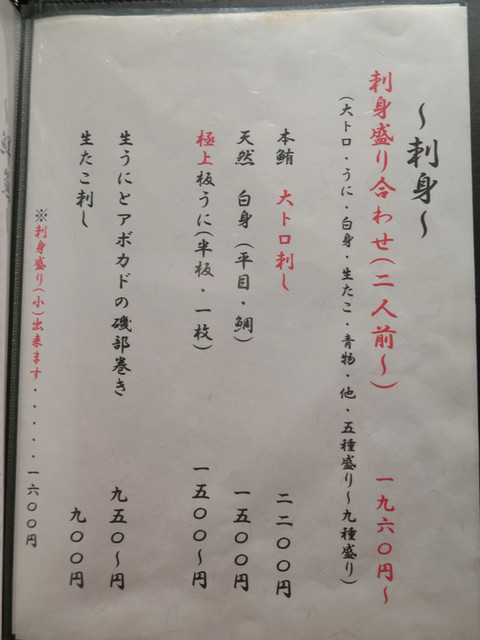 ～刺身～
刺身盛り合わせ(二人前～) 一九六〇円～
(大トロ・うに・白身・生たこ・青物・他・五種盛り～九種盛り)
本鮪 大トロ刺し 二二〇〇円
天然 白身(平目・鯛) 一五〇〇円
極上板うに(半板・一枚) 一五〇〇～円
生うにとアボカドの磯部巻き 九五〇～円
生たこ刺し 九〇〇円
※刺身盛り(小)出来ます・・・・・・一六〇〇円